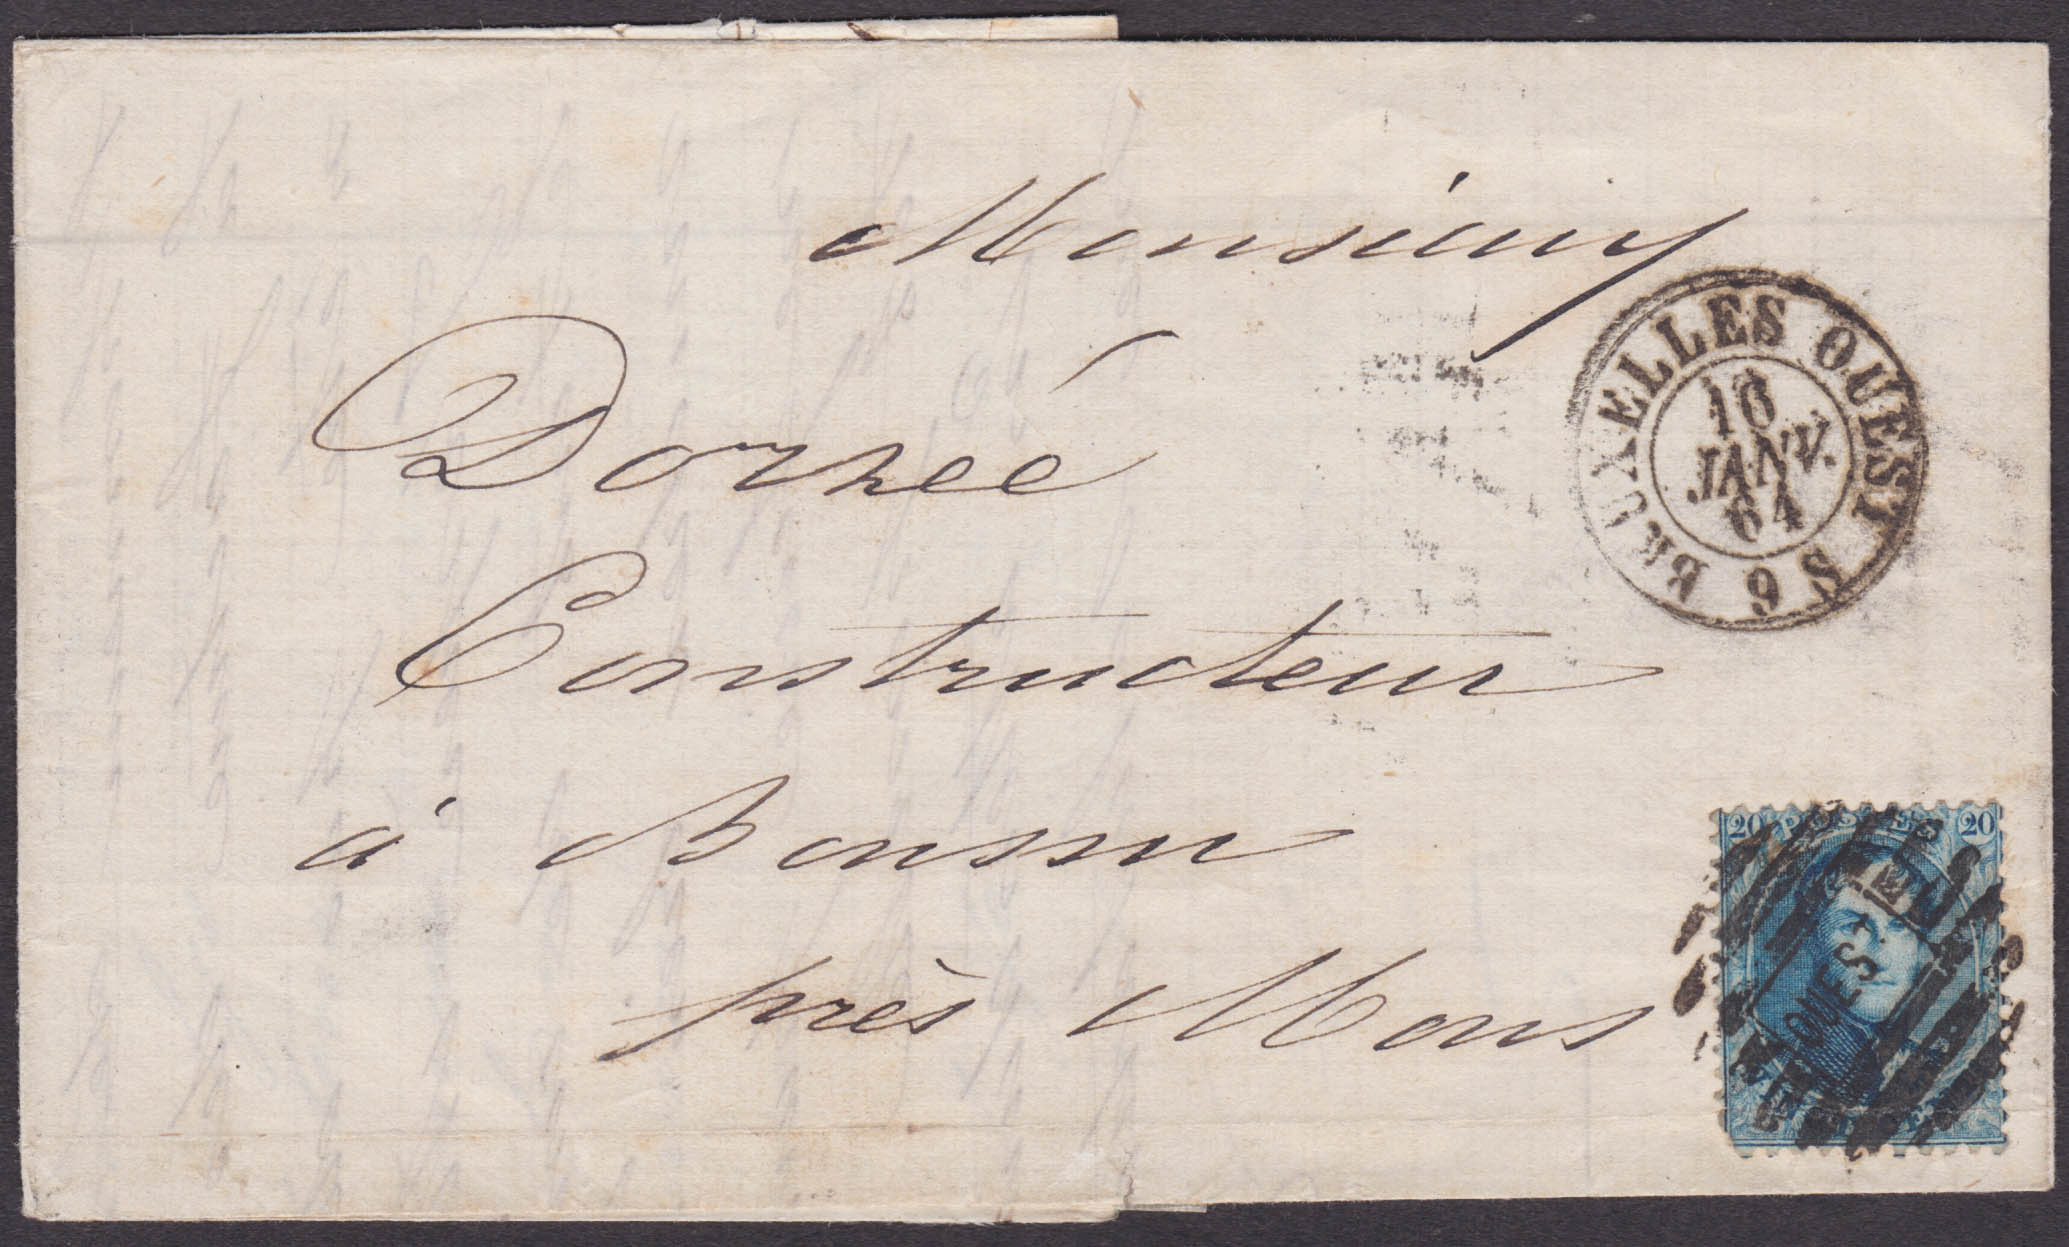 Monsieur
Dorzée
Constructeur
à Boussu
près Mons
BRUXELLES OUEST S 6
16
JANV.
64
20 20
OUEST